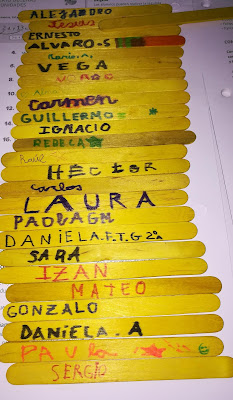 ALEJANDRO
Jesús
ERNESTO
ALVARO-S
VEGA
Carmen
GUILLERMO
IGNACIO
REBECA
Raúl
HECTOR
Carlos
LAURA
PAOLAGM
DANIELA.F.T.G 2ºa
SARA
IZAN
MATEO
GONZALO
DANiELA.A
PAULA
SERGIO